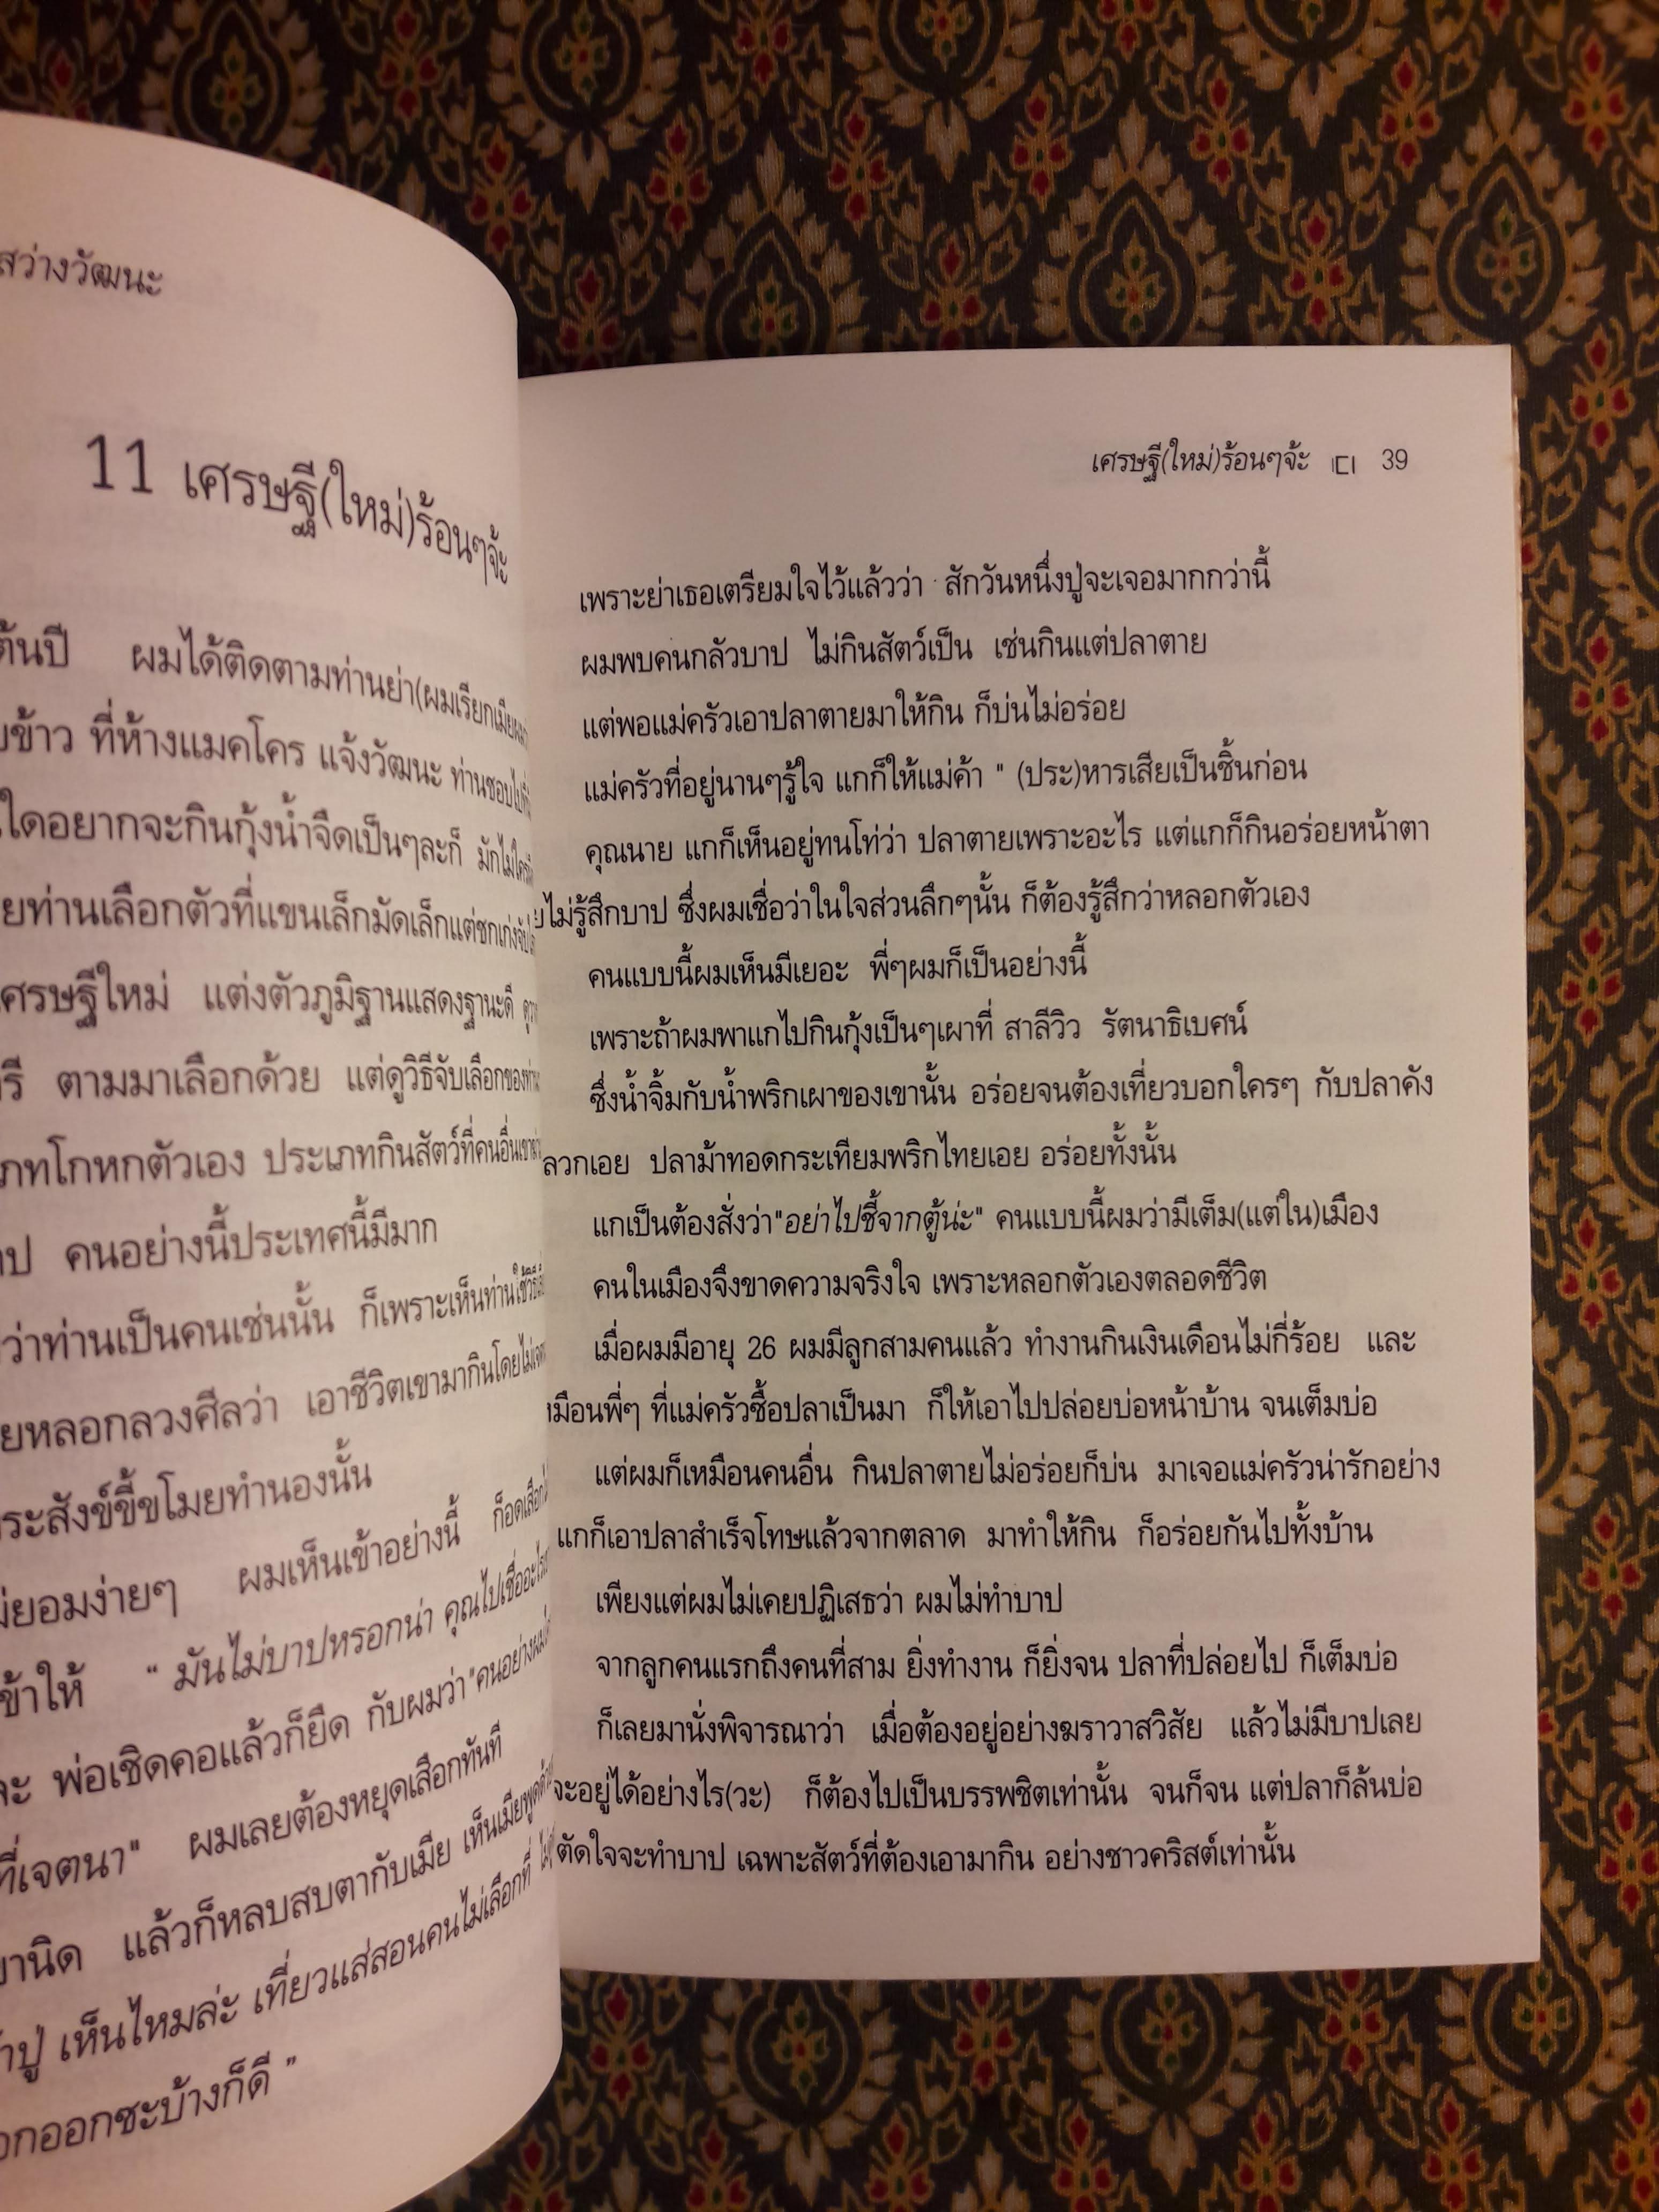 สว่างวัฒนะ
11 เศรษฐี(ใหม่)ร้อนๆจ้ะ
ต้นปี ผมได้ติดตามท่านย่า(ผมเรียกเมีย
ข้าว ที่ห้างแมคโคร แจ้งวัฒนะ ท่านชอบไป
ใดอยากจะกินกุ้งน้ำจืดเป็นๆละก็ มักไม่
ยท่านเลือกตัวที่แขนเล็กมัดเล็กแต่ชกเก่ง
ศรษฐีใหม่ แต่งตัวภูมิฐานแสดงฐานะดี
รี ตามมาเลือกด้วย แต่ดูวิธีจับเลือกของท่าน
ภทโกหกตัวเอง ประเภทกินสัตว์ที่คนอื่นเขา
าป คนอย่างนี้ประเทศนี้มีมาก
ว่าท่านเป็นคนเช่นนั้น ก็เพราะเห็นท่านใช้วิธี
ยหลอกลวงศีลว่า เอาชีวิตเขามากินโดยไม่
ระสังข์ขี้ขโมยทำนองนั้น
ม่ยอมง่ายๆ ผมเห็นเข้าอย่างนี้ ก็อดเสือก
ข้าให้ " มันไม่บาปหรอกน่า คุณไปเชื่อ
ละ พ่อเชิดคอแล้วก็ยืด กับผมว่า "คนอย่างผม
ที่เจตนา" ผมเลยต้องหยุดเสือกทันที
านิด แล้วก็หลบสบตากับเมีย เห็นเมียพูด
าปู่ เห็นไหมล่ะ เที่ยวแส่สอนคนไม่เลือกที่
อกออกซะบ้างก็ดี "
เศรษฐี(ใหม่)ร้อนๆจ้ะ 39
เพราะย่าเธอเตรียมใจไว้แล้วว่า สักวันหนึ่งปู่จะเจอมากกว่านี้
ผมพบคนกลัวบาป ไม่กินสัตว์เป็น เช่นกินแต่ปลาตาย
แต่พอแม่ครัวเอาปลาตายมาให้กิน ก็บ่นไม่อร่อย
แม่ครัวที่อยู่นานๆรู้ใจ แกก็ให้แม่ค้า " (ประ)หารเสียเป็นชิ้นก่อน
คุณนาย แกก็เห็นอยู่ทนโท่ว่า ปลาตายเพราะอะไร แต่แกก็กินอร่อยหน้าตา
ยไม่รู้สึกบาป ซึ่งผมเชื่อว่าในใจส่วนลึกๆนั้น ก็ต้องรู้สึกว่าหลอกตัวเอง
คนแบบนี้ผมเห็นมีเยอะ พี่ๆผมก็เป็นอย่างนี้
เพราะถ้าผมพาแกไปกินกุ้งเป็นๆเผาที่ สาลีวิว รัตนาธิเบศน์
ซึ่งน้ำจิ้มกับน้ำพริกเผาของเขานั้น อร่อยจนต้องเที่ยวบอกใครๆ กับปลาคัง
ลวกเอย ปลาม้าทอดกระเทียมพริกไทยเอย อร่อยทั้งนั้น
แกเป็นต้องสั่งว่า"อย่าไปชี้จากตู้น่ะ" คนแบบนี้ผมว่ามีเต็ม(แต่ใน)เมือง
คนในเมืองจึงขาดความจริงใจ เพราะหลอกตัวเองตลอดชีวิต
เมื่อผมมีอายุ 26 ผมมีลูกสามคนแล้ว ทำงานกินเงินเดือนไม่กี่ร้อย และ
หมือนพี่ๆ ที่แม่ครัวซื้อปลาเป็นมา ก็ให้เอาไปปล่อยบ่อหน้าบ้าน จนเต็มบ่อ
แต่ผมก็เหมือนคนอื่น กินปลาตายไม่อร่อยก็บ่น มาเจอแม่ครัวน่ารักอย่าง
แกก็เอาปลาสำเร็จโทษแล้วจากตลาด มาทำให้กิน ก็อร่อยกันไปทั้งบ้าน
เพียงแต่ผมไม่เคยปฏิเสธว่า ผมไม่ทำบาป
จากลูกคนแรกถึงคนที่สาม ยิ่งทำงาน ก็ยิ่งจน ปลาที่ปล่อยไป ก็เต็มบ่อ
ก็เลยมานั่งพิจารณาว่า เมื่อต้องอยู่อย่างฆราวาสวิสัย แล้วไม่มีบาปเลย
จะอยู่ได้อย่างไร(วะ) ก็ต้องไปเป็นบรรพชิตเท่านั้น จนก็จน แต่ปลาก็ล้นบ่อ
ตัดใจจะทำบาป เฉพาะสัตว์ที่ต้องเอามากิน อย่างชาวคริสต์เท่านั้น